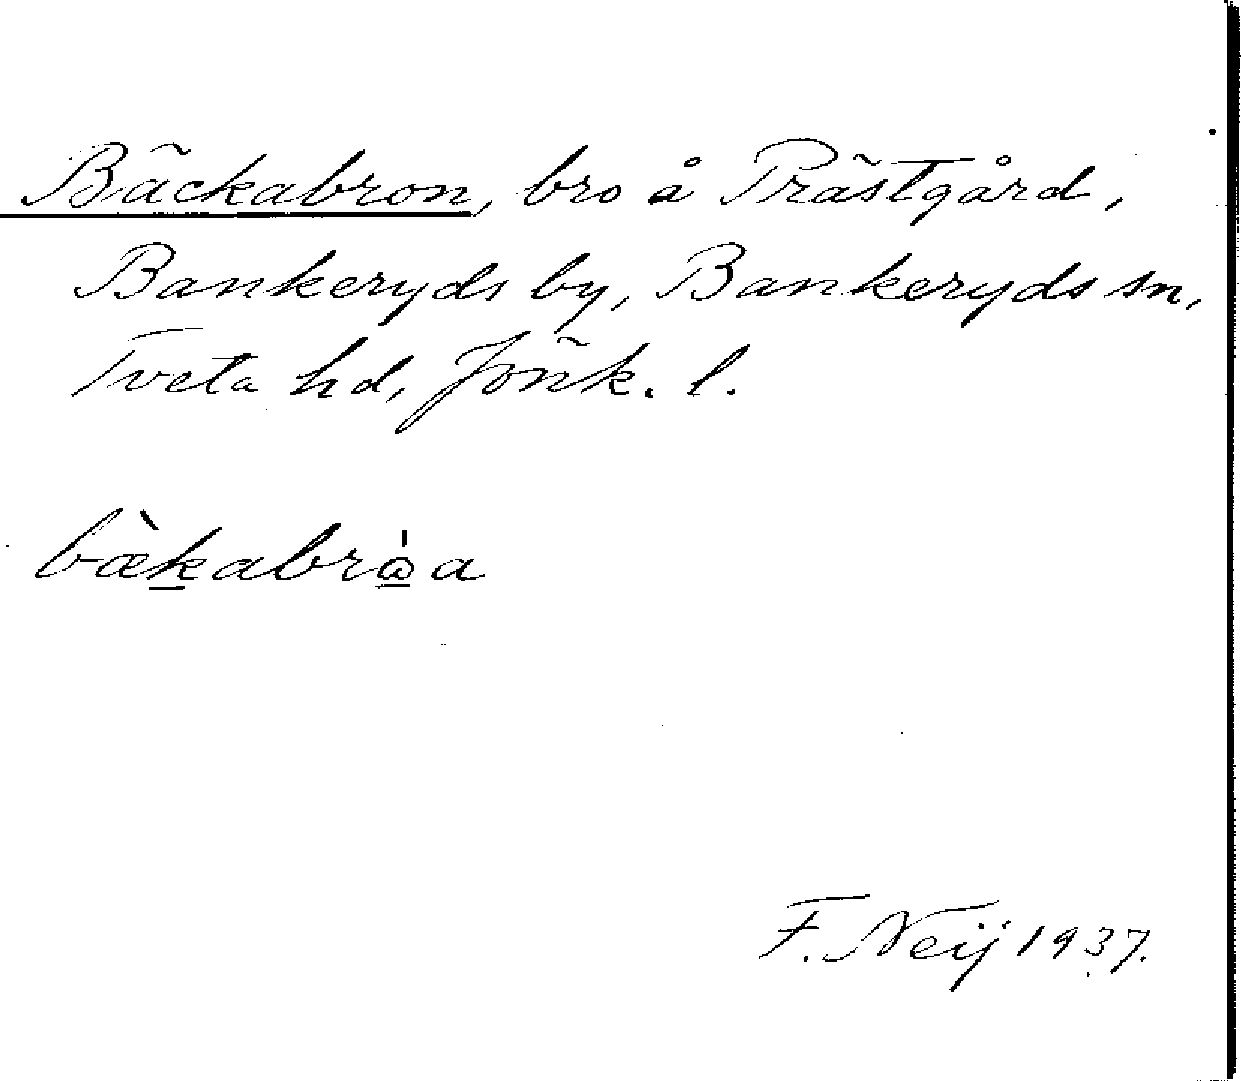 Bäckabron, bro å Prästgård,
Bankeryds by, Bankeryds sn,
Tveta hd, Jönk. l.
bæ̀kabrѡ̀a
F. Neij 1937.